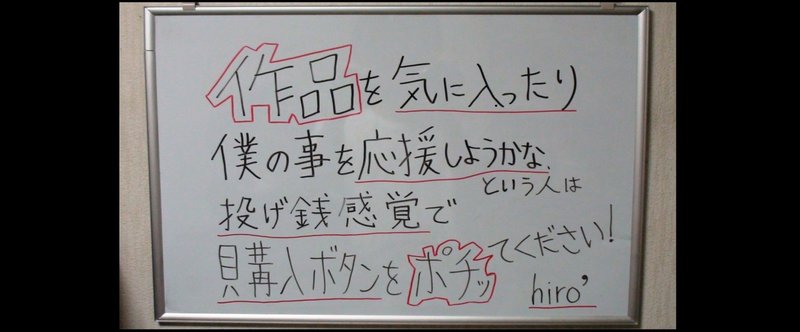 作品を気に入ったり
僕の事を応援しようかな
という人は
投げ銭感覚で
購入ボタンをポチッてください!
hiro'